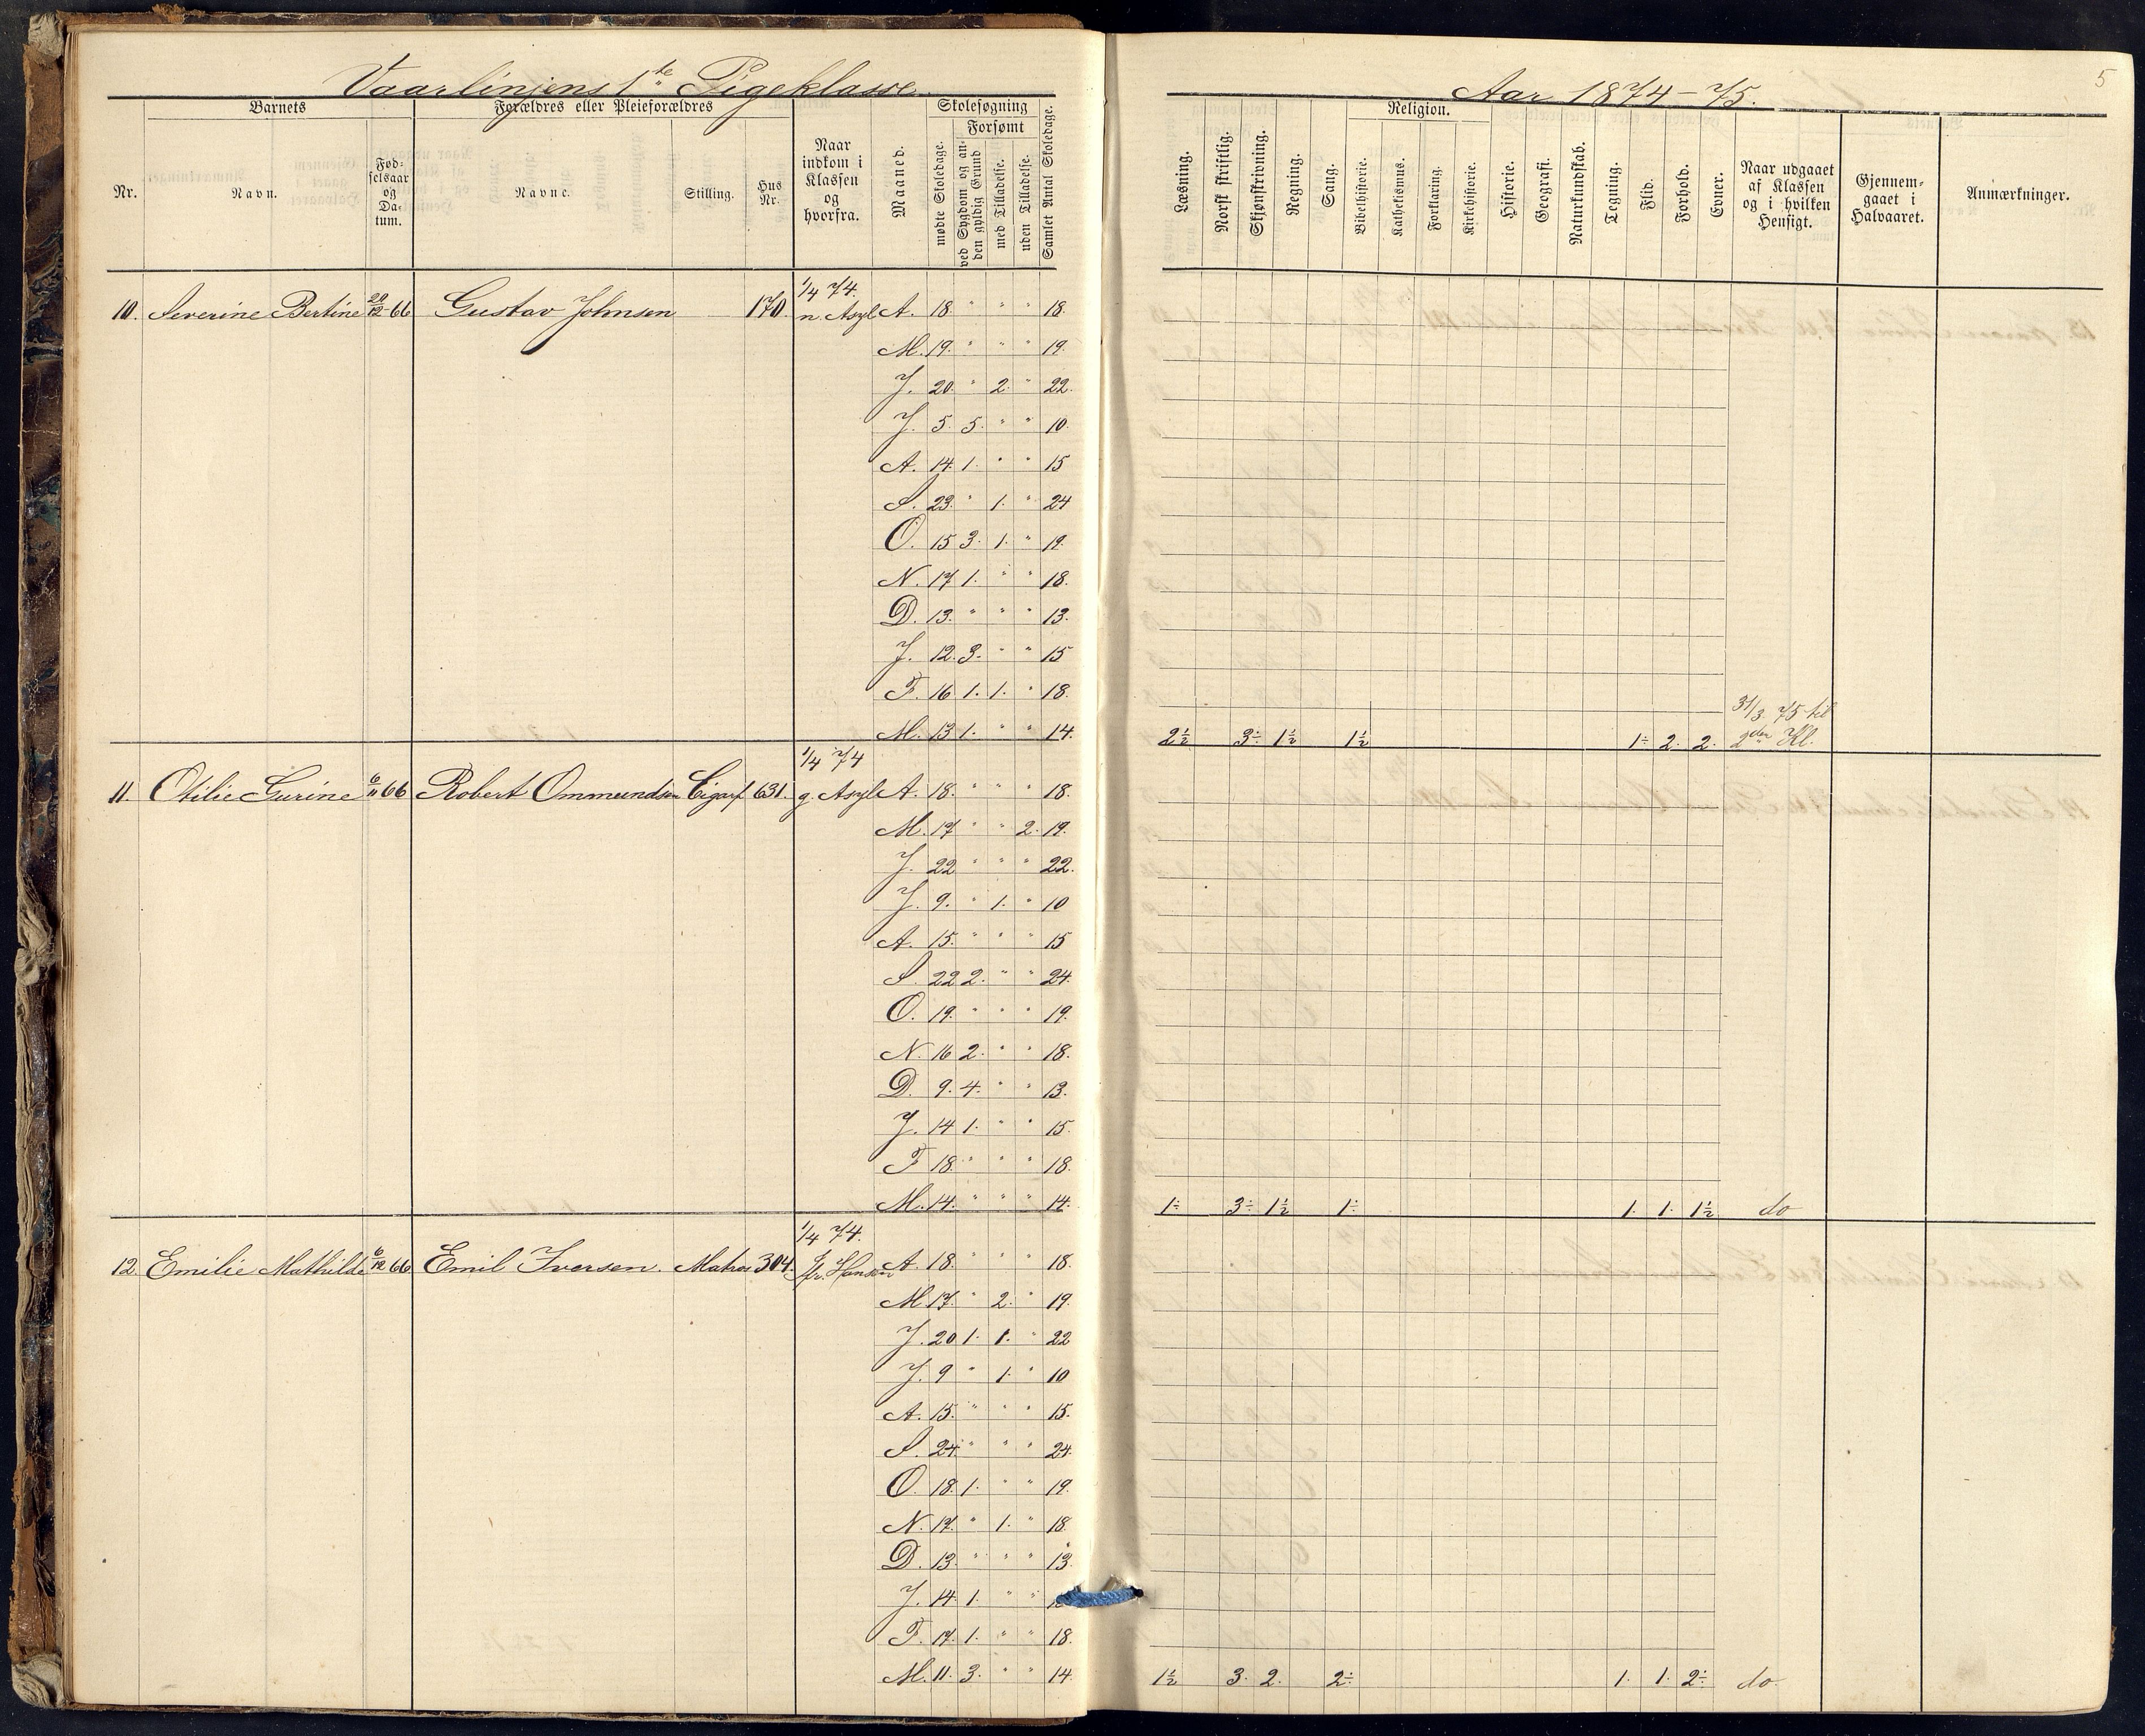 Vaarliniens 1ste Pigeklasse.
Aar 1874-75.
5
Barnets
Forældres eller Pleieforældres
Naar indkom i Klassen og hvorfra.
Maaned.
Skolesøgning
Forsømt
Nr.
Navn.
Fødselsaar og Datum.
Navne.
Stilling.
Hus Nr.
mødte Skoledage.
ved Sygdom og anden gyldig Grund
med Tilladelse.
uden Tilladelse.
Samlet Antal Skoledage.
Læsning.
Norsk skriftlig.
Skjønskrivning.
Regning.
Sang.
Religion.
Bibelhistorie.
Kathekismus.
Forklaring.
Kirkehistorie.
Historie.
Geografi.
Naturkundskab.
Tegning.
Flid.
Forhold.
Evner.
Naar udgaaet af Klassen og i hvilken Hensigt.
Gjennemgaaet i Halvaaret.
Anmærkninger.
1/4 74.
10. Severine Bertine 20/12 66 Gustav Johnsen 170. n. Asyl A. 18. " " " 18.
M. 19. " " " 19.
J. 20. " 2. " 22.
J. 5. 5. " " 10.
A. 14. 1. " " 15
S. 23. " 1. " 24
O. 15 3. 1. " 19.
N. 17 1. " " 18.
D. 13. " " " 13.
J. 12. 3. " " 15
F. 16 1. 1. " 18.
M. 13 1. " " 14.
2½ 3÷ 1½ 1½ 1÷ 2. 2. 31/3 75 til 2den Kl.
1/4 74
11. Otilie Gurine 6/11 66 Robert Ommundsen Cigarf. 631. g. Asyl A. 18. " " " 18.
M. 17 " " 2. 19.
J. 22 " " " 22.
J. 9. " 1. " 10
A. 15. " " " 15
S. 22 2. " " 24.
O. 19. " " " 19.
N. 16 2. " " 18.
D. 9. 4. " " 13.
J. 14 1. " " 15.
F. 18. " " " 18.
M. 14. " " " 14.
1÷ 3÷ 1½ 1÷ 1. 1. 1½ do
1/4 74.
12. Emilie Mathilde 6/12 66 Emil Iversen. Matros 304. Hansen A. 18. " " " 18.
M. 17. " 2. " 19.
J. 20 1. 1. " 22
J. 9 " 1. " 10
A. 15. " " " 15.
S. 24. " " " 24.
O. 18. 1. " " 19.
N. 17. " 1. " 18.
D. 13. " " " 13.
J. 14. 1. " "
F. 17. 1. " " 18.
M. 11. 3. " " 14.
1½ 3. 2. 2÷ 1. 1. 2÷ do